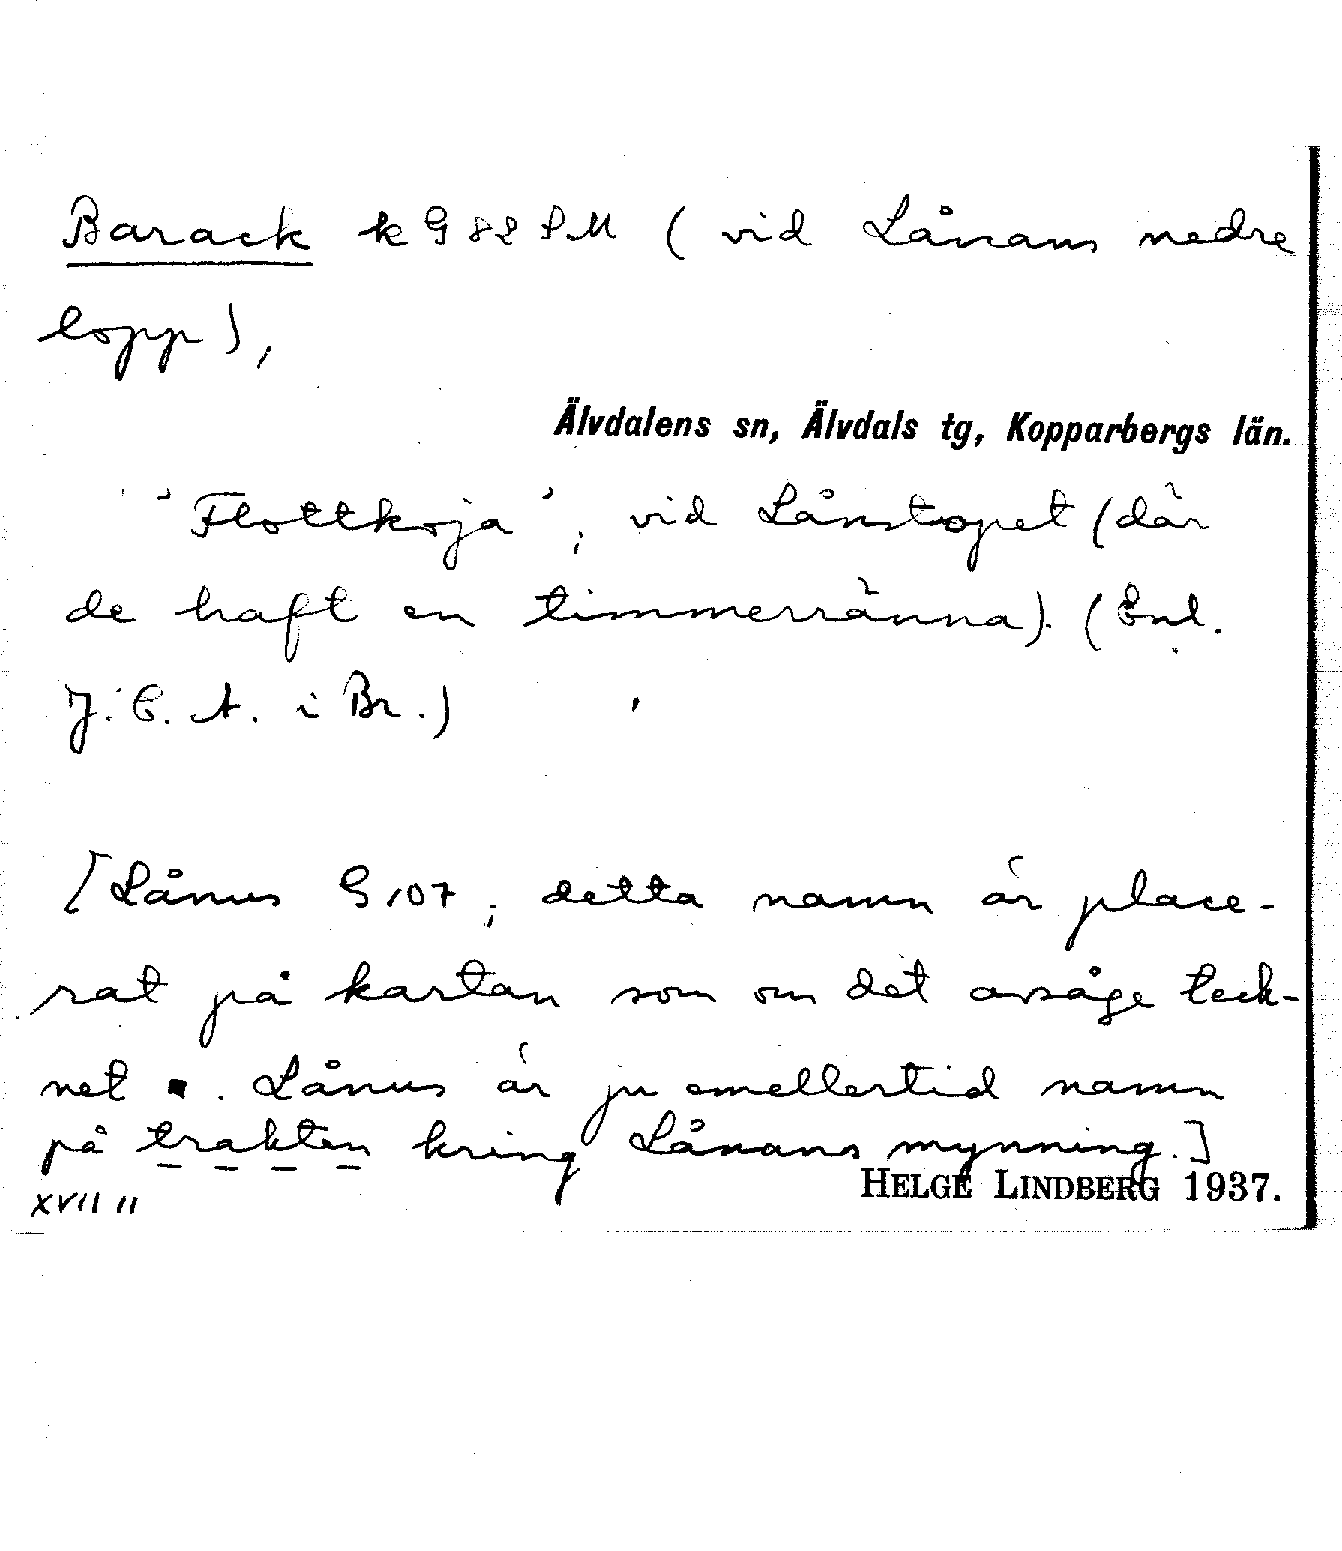 Barack k G 82 SM (vid Lånans nedre
lopp),
Älvdalens sn, Älvdals tg, Kopparbergs län.
'Flottkoja', vid Lånstopet (där
de haft en timmerränna). (Enl.
J. E. A. i Br.)
[Lånus G 107; detta namn är place-
rat på kartan som om det avsåge teck-
net ▪. Lånus är ju emellertid namn
på trakten kring Lånans mynning.]
XVII 11
HELGE LINDBERG 1937.